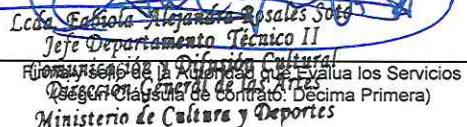 Lcda. Fabiola Alejandra Rosales Soto
Jefe Departamento Técnico II
Comunicación y Difusión Cultural
Firma y sello de la Autoridad que Evalua los Servicios
Dirección General de las Artes
(según Cláusula de contrato: Décima Primera)
Ministerio de Cultura y Deportes